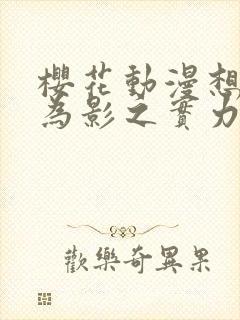 櫻花動漫想
為影之實力
歡樂奇異果